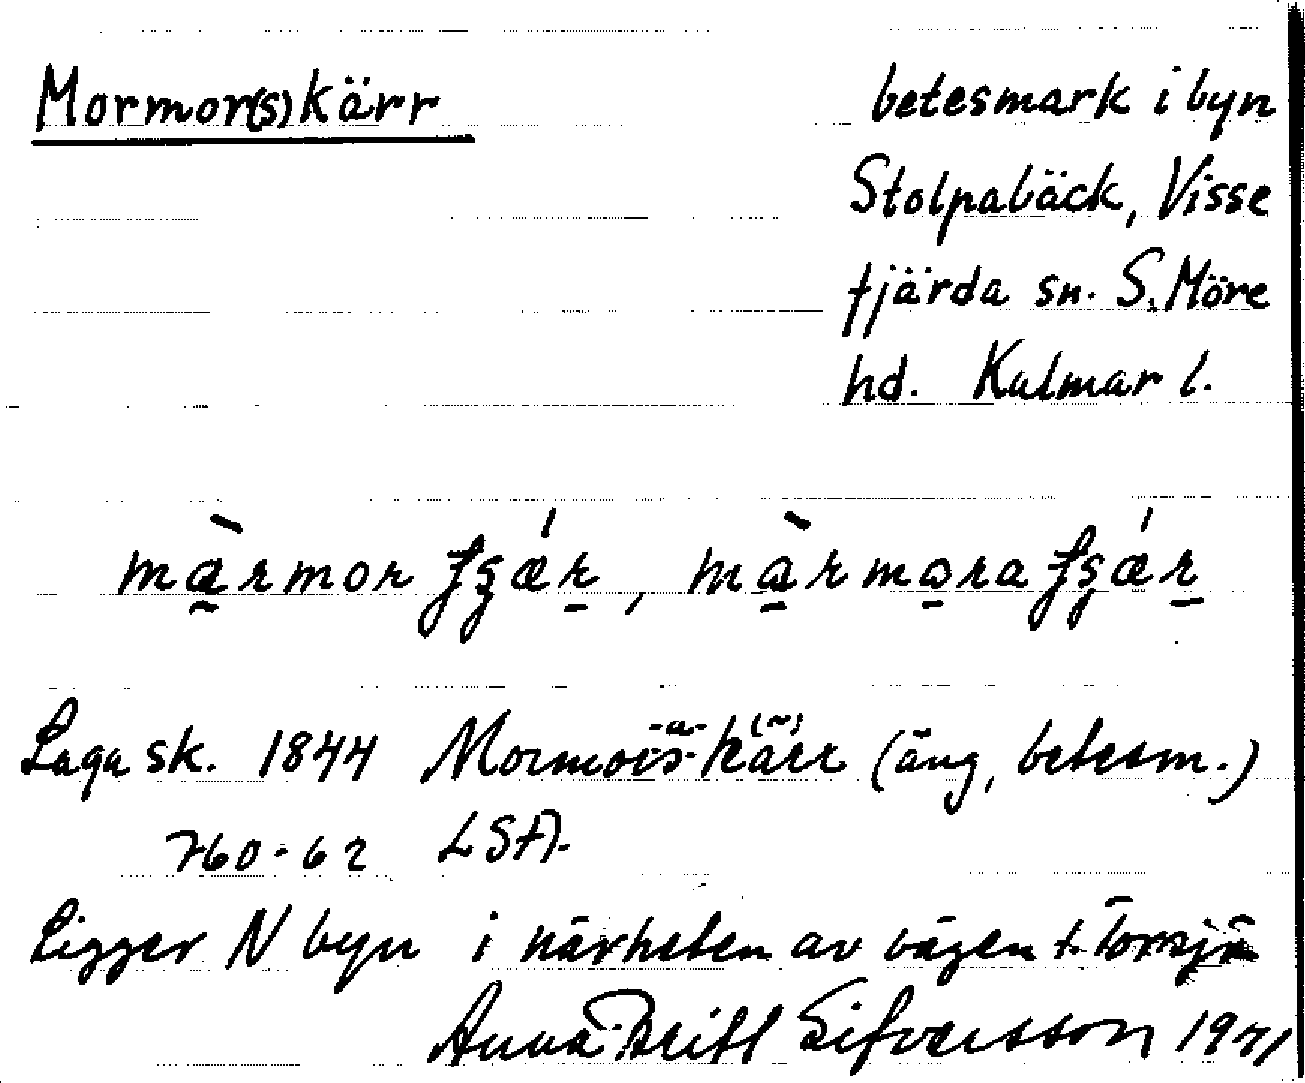 Mormor(s)kärr
betesmark i byn
Stolpabäck, Visse
fjärda sn. S. Möre
hd. Kalmar l.
Laga sk. 1844 Mormors-kärr (äng, betesm.)
760-62 LSA.
Ligger N byn i närheten av vägen t.
Anna-Britt Sifversson 1971